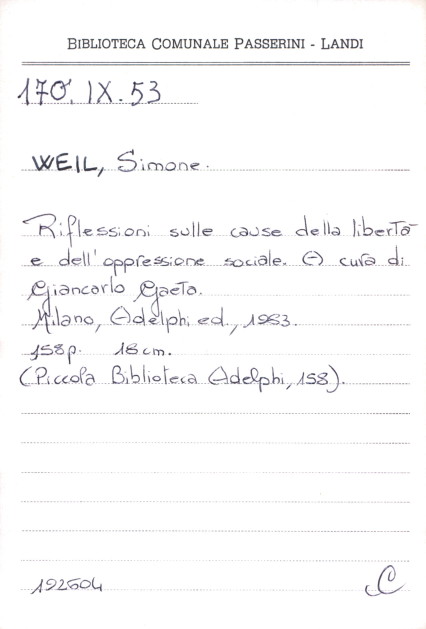 BIBLIOTECA COMUNALE PASSERINI - LANDI
170. IX. 53
WEIL, Simone.
Riflessioni sulle cause della libertà
e dell'oppressione sociale. A cura di
Giancarlo Gaeta.
Milano, Adelphi ed., 1983.
158p. 18cm.
(Piccola Biblioteca Adelphi, 158).
192604
C